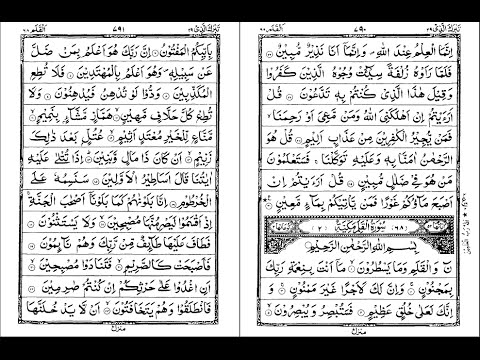 تبرك الذی ٢٩
٧٩٠
القلم ٦٨
اِنَّمَا الْعِلْمُ عِنْدَ اللّٰهِ وَاِنَّمَاۤ اَنَا نَذِيْرٌ مُّبِيْنٌ ۝
فَلَمَّا رَاَوْهُ زُلْفَةً سِيْٓـَٔتْ وُجُوْهُ الَّذِيْنَ كَفَرُوْا
وَقِيْلَ هٰذَا الَّذِيْ كُنْتُمْ بِهٖ تَدَّعُوْنَ ۝ قُلْ
اَرَءَيْتُمْ اِنْ اَهْلَكَنِيَ اللّٰهُ وَمَنْ مَّعِيَ اَوْ رَحِمَنَا ۙ
فَمَنْ يُّجِيْرُ الْكٰفِرِيْنَ مِنْ عَذَابٍ اَلِيْمٍ ۝ قُلْ هُوَ
الرَّحْمٰنُ اٰمَنَّا بِهٖ وَعَلَيْهِ تَوَكَّلْنَا ۚ فَسَتَعْلَمُوْنَ
مَنْ هُوَ فِيْ ضَلٰلٍ مُّبِيْنٍ ۝ قُلْ اَرَءَيْتُمْ اِنْ
اَصْبَحَ مَآؤُكُمْ غَوْرًا فَمَنْ يَّاْتِيْكُمْ بِمَآءٍ مَّعِيْنٍ ۝
(٦٨) سُوْرَةُ الْقَلَمِ مَكِّيَّةٌ (٢)
بِسْمِ اللّٰهِ الرَّحْمٰنِ الرَّحِيْمِ
نٓ وَالْقَلَمِ وَمَا يَسْطُرُوْنَ ۝ مَاۤ اَنْتَ بِنِعْمَةِ رَبِّكَ
بِمَجْنُوْنٍ ۝ وَاِنَّ لَكَ لَاَجْرًا غَيْرَ مَمْنُوْنٍ ۝ وَ
اِنَّكَ لَعَلٰى خُلُقٍ عَظِيْمٍ ۝ فَسَتُبْصِرُ وَيُبْصِرُوْنَ ۝
منزل
تبرك الذی ٢٩
٧٩١
القلم ٦٨
بِاَىيِّكُمُ الْمَفْتُوْنُ ۝ اِنَّ رَبَّكَ هُوَ اَعْلَمُ بِمَنْ ضَلَّ
عَنْ سَبِيْلِهٖ وَهُوَ اَعْلَمُ بِالْمُهْتَدِيْنَ ۝ فَلَا تُطِعِ
الْمُكَذِّبِيْنَ ۝ وَدُّوْا لَوْ تُدْهِنُ فَيُدْهِنُوْنَ ۝ وَلَا
تُطِعْ كُلَّ حَلَّافٍ مَّهِيْنٍ ۝ هَمَّازٍ مَّشَّآءٍ بِنَمِيْمٍ ۝
مَنَّاعٍ لِّلْخَيْرِ مُعْتَدٍ اَثِيْمٍ ۝ عُتُلٍّ بَعْدَ ذٰلِكَ
زَنِيْمٍ ۝ اَنْ كَانَ ذَا مَالٍ وَّبَنِيْنَ ۝ اِذَا تُتْلٰى عَلَيْهِ
اٰيٰتُنَا قَالَ اَسَاطِيْرُ الْاَوَّلِيْنَ ۝ سَنَسِمُهٗ عَلَى
الْخُرْطُوْمِ ۝ اِنَّا بَلَوْنٰهُمْ كَمَا بَلَوْنَاۤ اَصْحٰبَ الْجَنَّةِ ۚ
اِذْ اَقْسَمُوْا لَيَصْرِمُنَّهَا مُصْبِحِيْنَ ۝ وَلَا يَسْتَثْنُوْنَ ۝
فَطَافَ عَلَيْهَا طَآئِفٌ مِّنْ رَّبِّكَ وَهُمْ نَآئِمُوْنَ ۝
فَاَصْبَحَتْ كَالصَّرِيْمِ ۝ فَتَنَادَوْا مُصْبِحِيْنَ ۝
اَنِ اغْدُوْا عَلٰى حَرْثِكُمْ اِنْ كُنْتُمْ صٰرِمِيْنَ ۝
فَانْطَلَقُوْا وَهُمْ يَتَخَافَتُوْنَ ۝ اَنْ لَّا يَدْخُلَنَّهَا
منزل